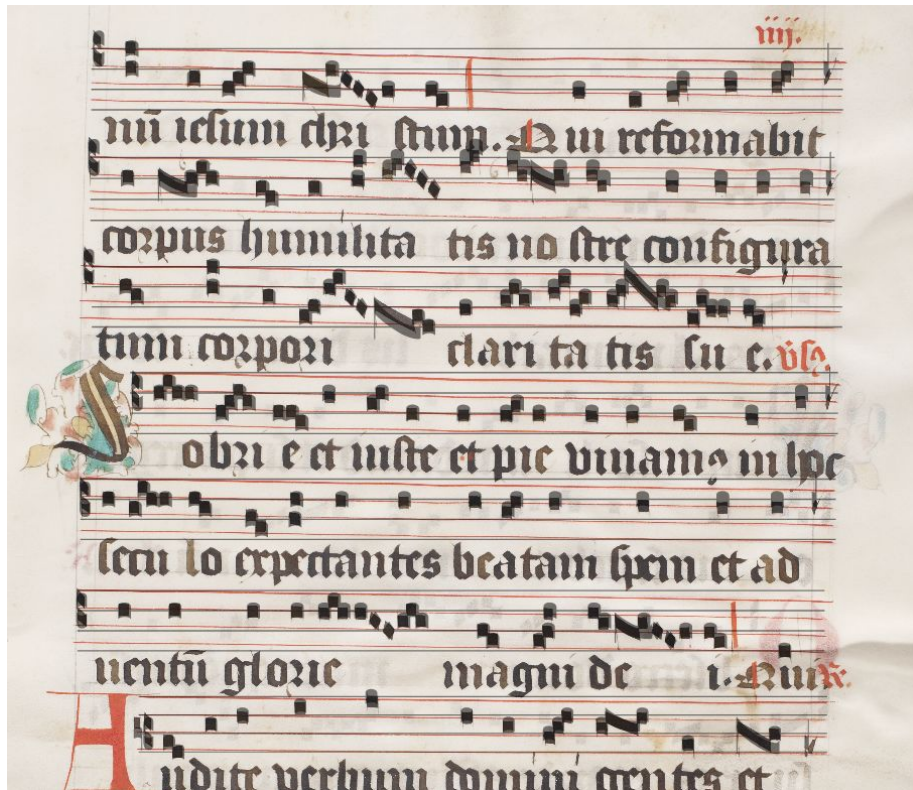 iiij.
nū iesum chri stum. Qui reformabit
corpus humilita tis no stre configura
tum corpori clari ta tis su e. v̄s.
Sobri e et iuste et pie viuamꝰ in hoc
secu lo expectantes beatam spem et ad
uentū glorie magni de i. Qui Re.
Audite verbum domini gentes et